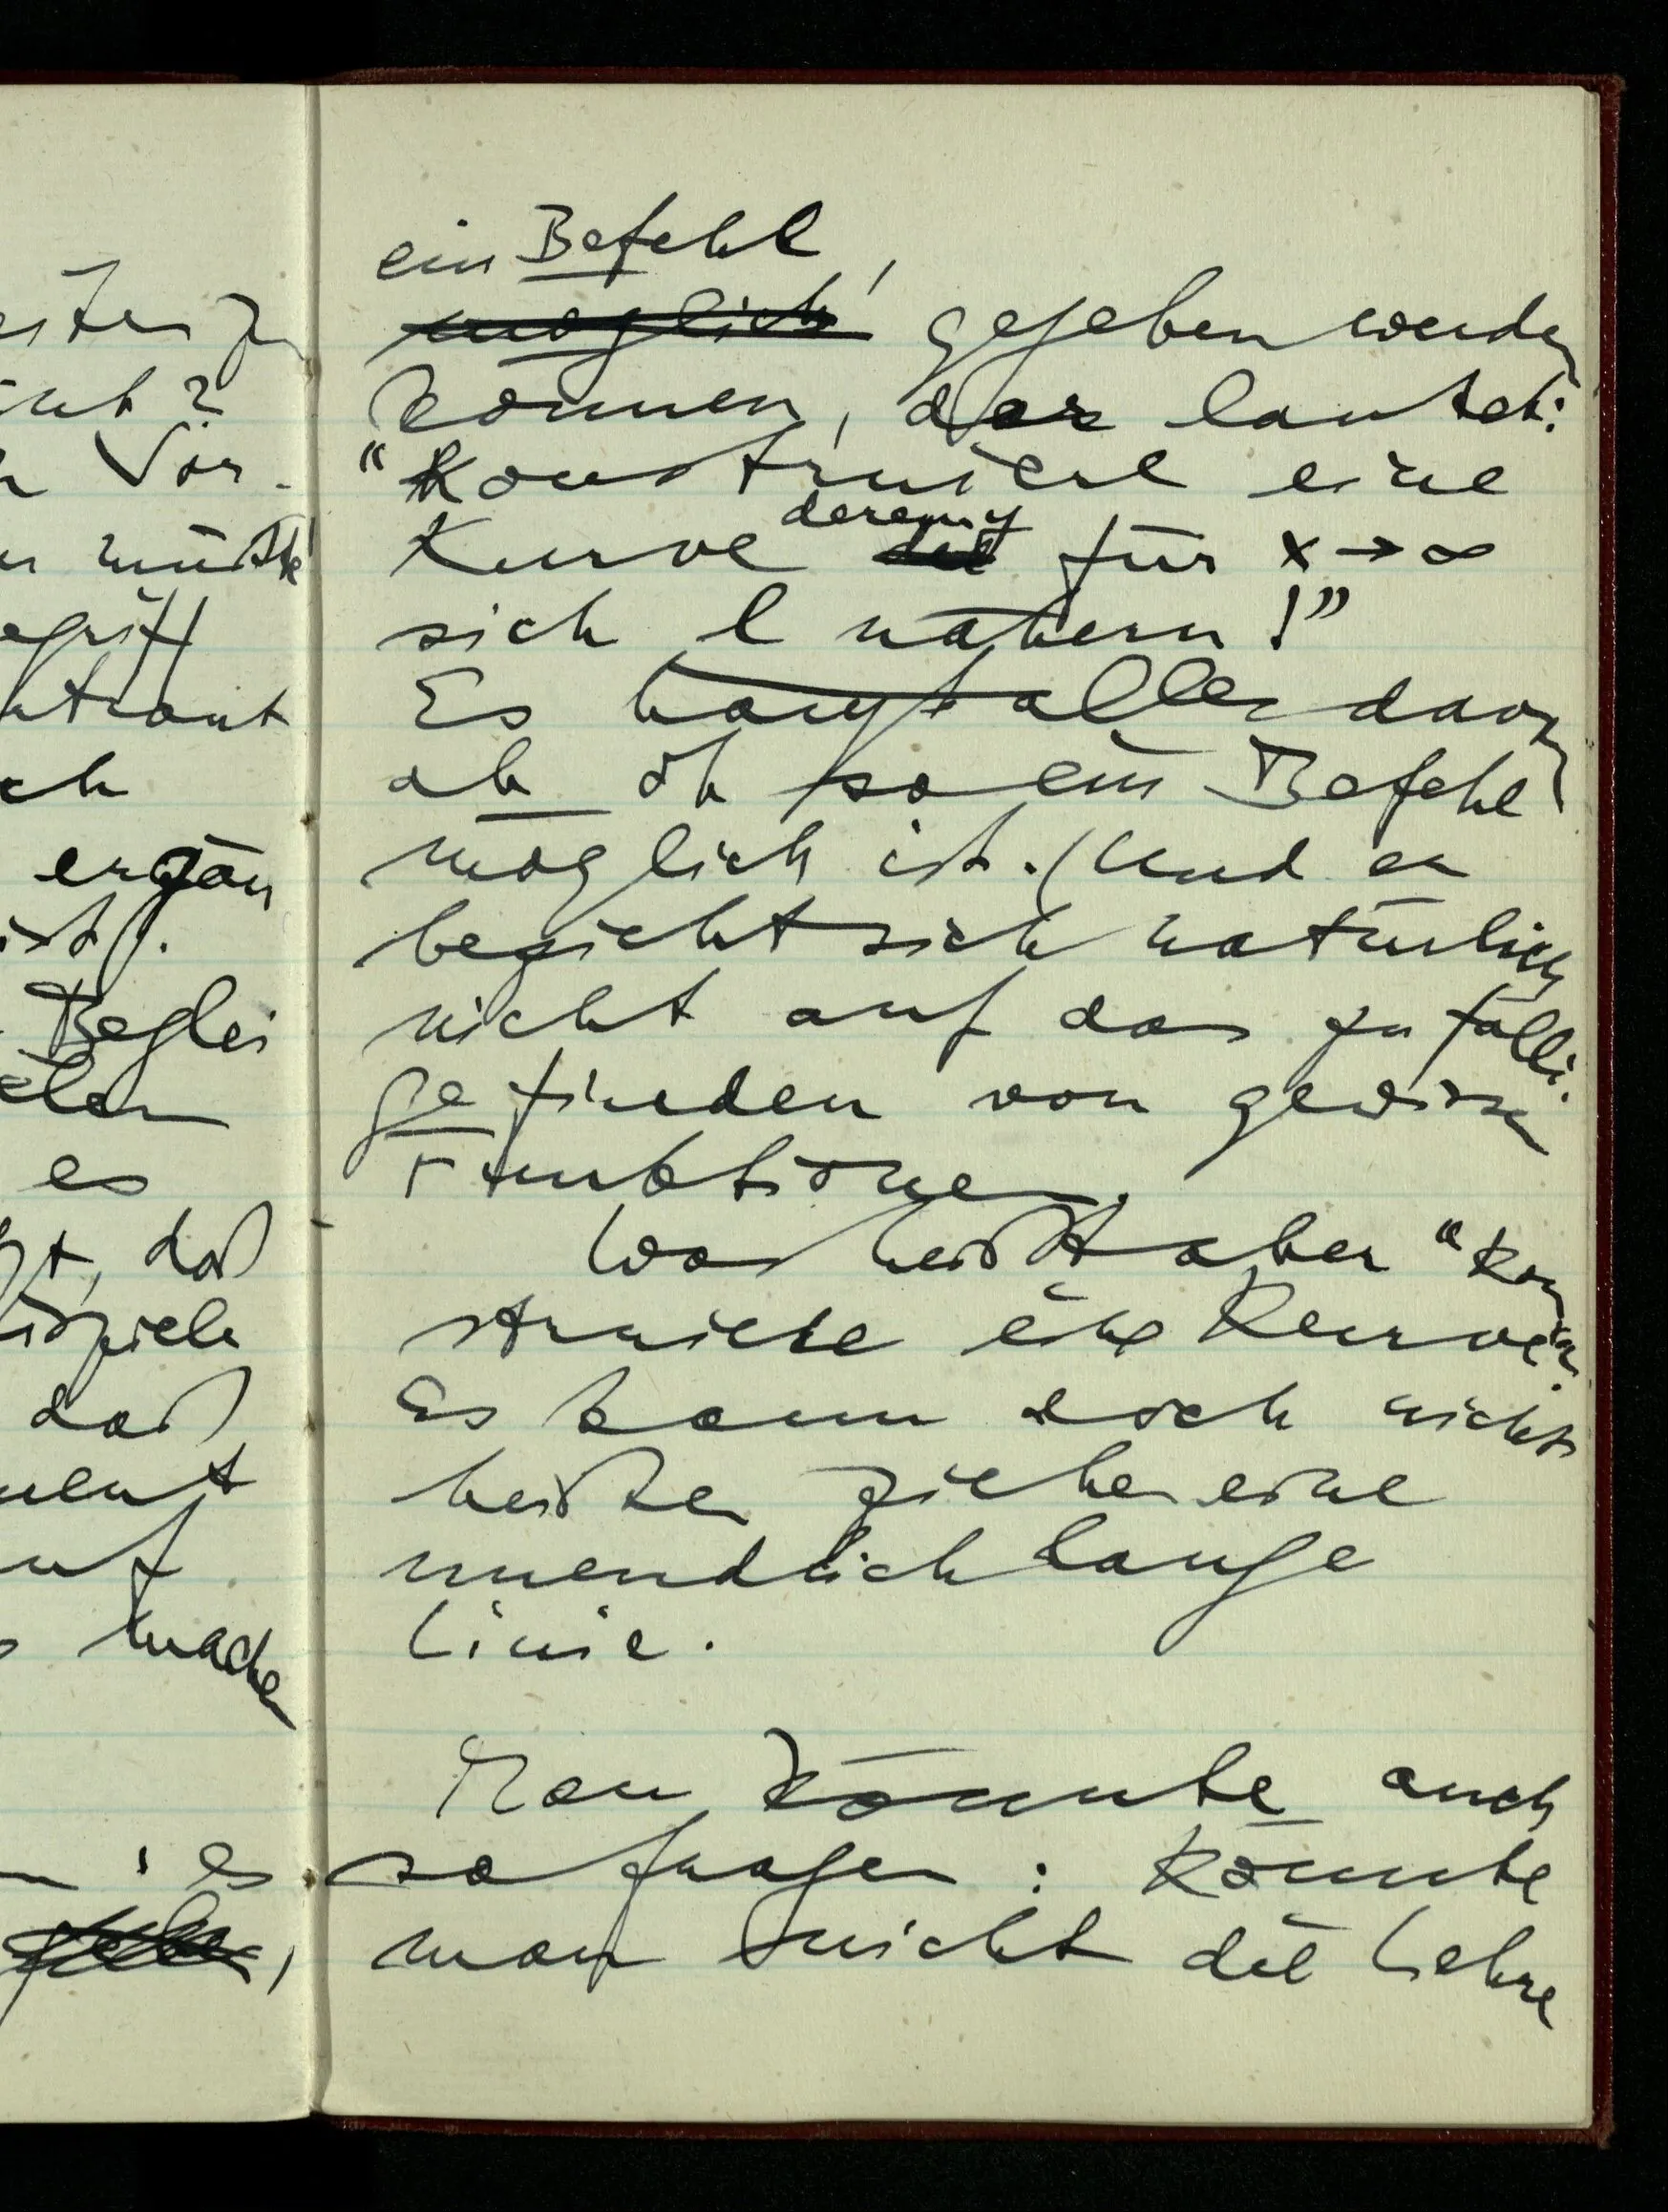 ester zu
Vor-
müßte
egriff
ch
ergän
ist).
Beglei
es
daß
daß
ment
auf
mache
es
ein Befehl,
möglich gegeben werden
können, der lautet:
"Konstruiere eine
Kurve deren y
die für x → ∞
sich l nähern!"
Es hängt alles davon
ab ob so ein Befehl
möglich ist. (Und er
bezieht sich natürlich
nicht auf das zufälli-
ge finden von gewissen
Funktionen.
Was heißt aber "kon
struiere eine Kurve".
Es kann doch nicht
heißen ziehe eine
unendlich lange
Linie.
Man könnte auch
so fragen: Könnte
man nicht die Lehre